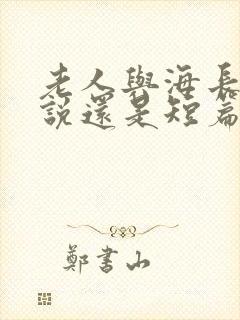 老人與海長
說還是短篇
鄭書山